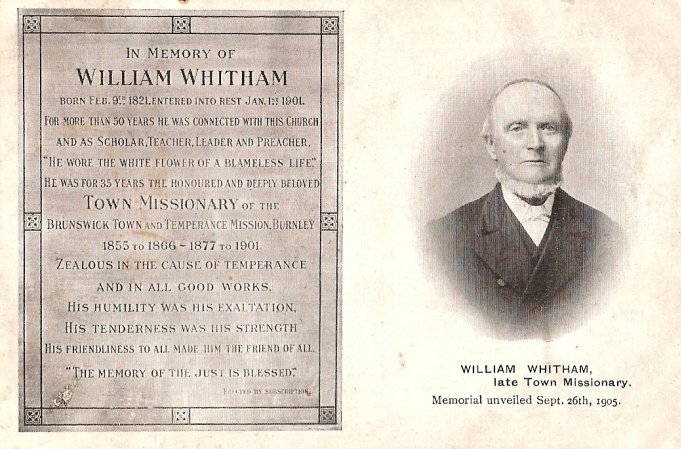 IN MEMORY OF
WILLIAM WHITHAM
BORN FEB. 9TH 1821. ENTERED INTO REST JAN. 1ST 1901.
FOR MORE THAN 50 YEARS HE WAS CONNECTED WITH THIS CHURCH
AND AS SCHOLAR, TEACHER, LEADER AND PREACHER,
"HE WORE THE WHITE FLOWER OF A BLAMELESS LIFE."
HE WAS FOR 35 YEARS THE HONOURED AND DEEPLY BELOVED
TOWN MISSIONARY OF THE
BRUNSWICK TOWN AND TEMPERANCE MISSION, BURNLEY
1855 TO 1866 – 1877 TO 1901.
ZEALOUS IN THE CAUSE OF TEMPERANCE
AND IN ALL GOOD WORKS,
HIS HUMILITY WAS HIS EXALTATION,
HIS TENDERNESS WAS HIS STRENGTH
HIS FRIENDLINESS TO ALL MADE HIM THE FRIEND OF ALL.
"THE MEMORY OF THE JUST IS BLESSED."
ERECTED BY SUBSCRIPTION.
WILLIAM WHITHAM,
late Town Missionary.
Memorial unveiled Sept. 26th, 1905.